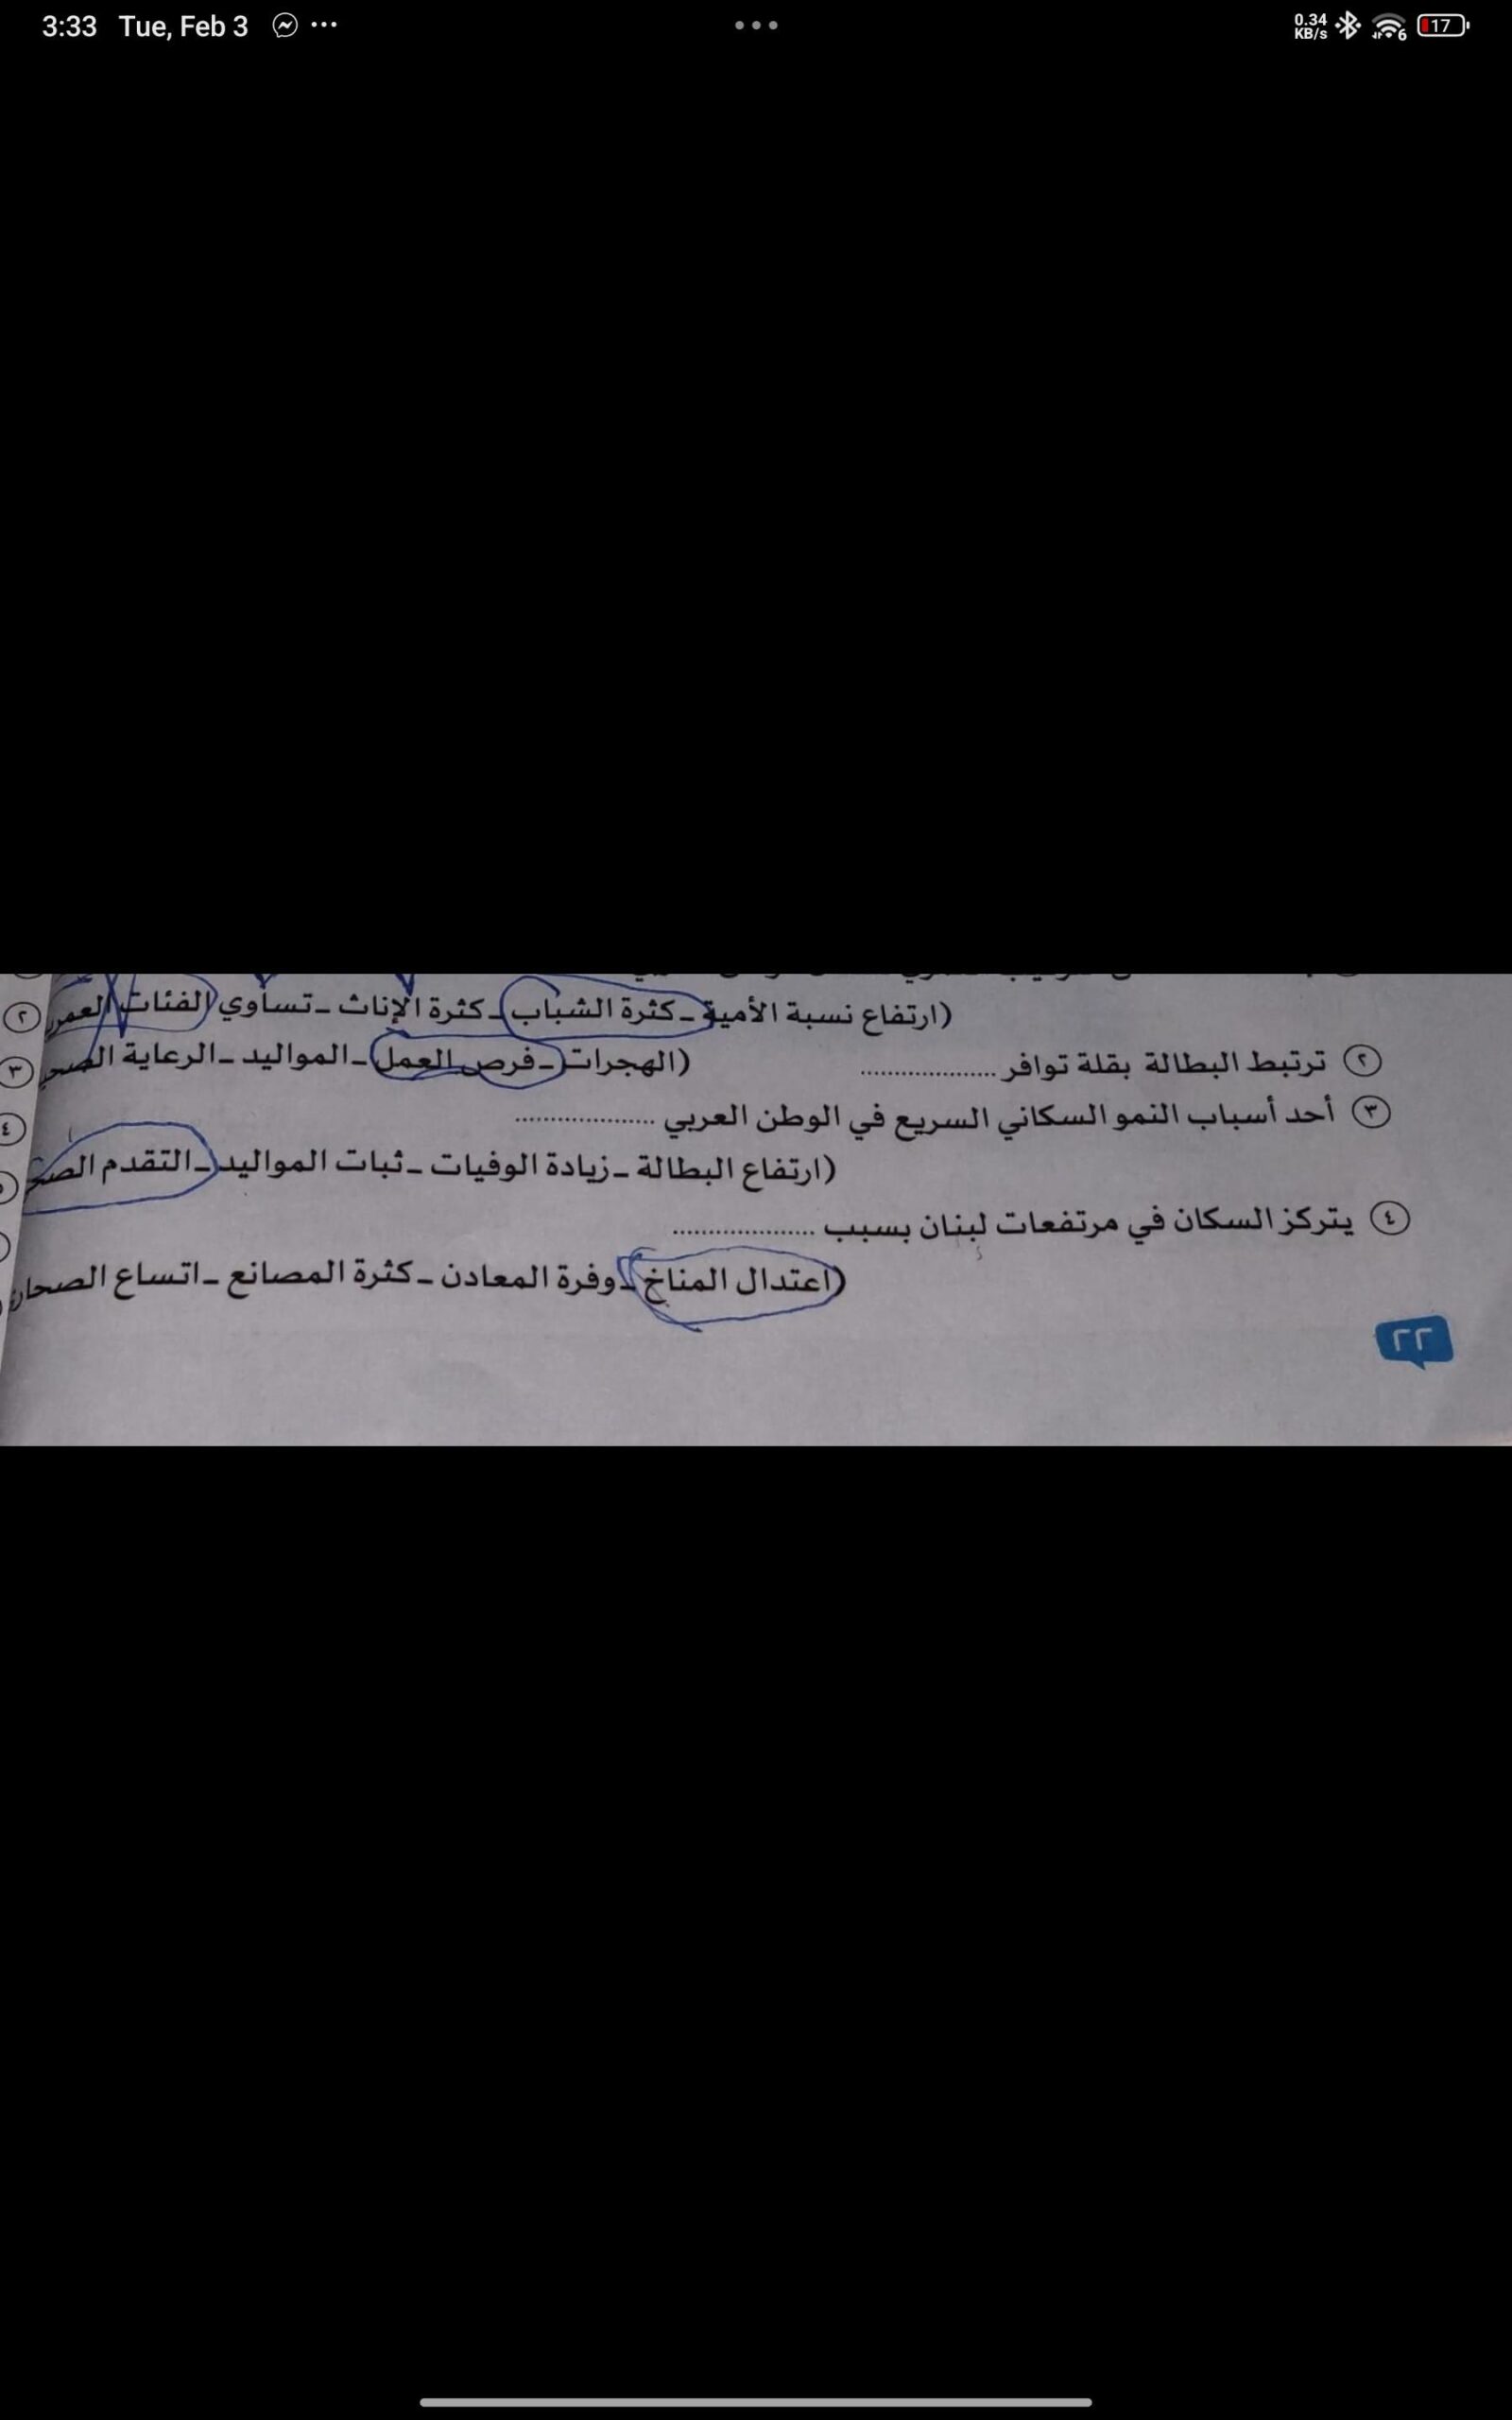 3:33 Tue, Feb 3
0.34 KB/s 6 17
(ارتفاع نسبة الأمية - كثرة الشباب - كثرة الإناث - تساوي الفئات
٢ ترتبط البطالة بقلة توافر .................... (الهجرات - فرص العمل - المواليد - الرعاية
٣ أحد أسباب النمو السكاني السريع في الوطن العربي ....................
(ارتفاع البطالة - زيادة الوفيات - ثبات المواليد - التقدم
٤ يتركز السكان في مرتفعات لبنان بسبب ....................
(اعتدال المناخ - وفرة المعادن - كثرة المصانع - اتساع
٢٢
٢
٣
٤